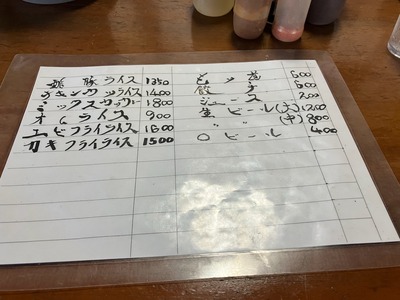 豚ライス 1350
チキンカツライス 1400
ミックス 1800
オムライス 900
エビフライライス 1600
カキフライライス 1500
600
餃子 600
ジュース 200
生ビール(大) 1200
〃 〃 (中) 800
〇ビール 400